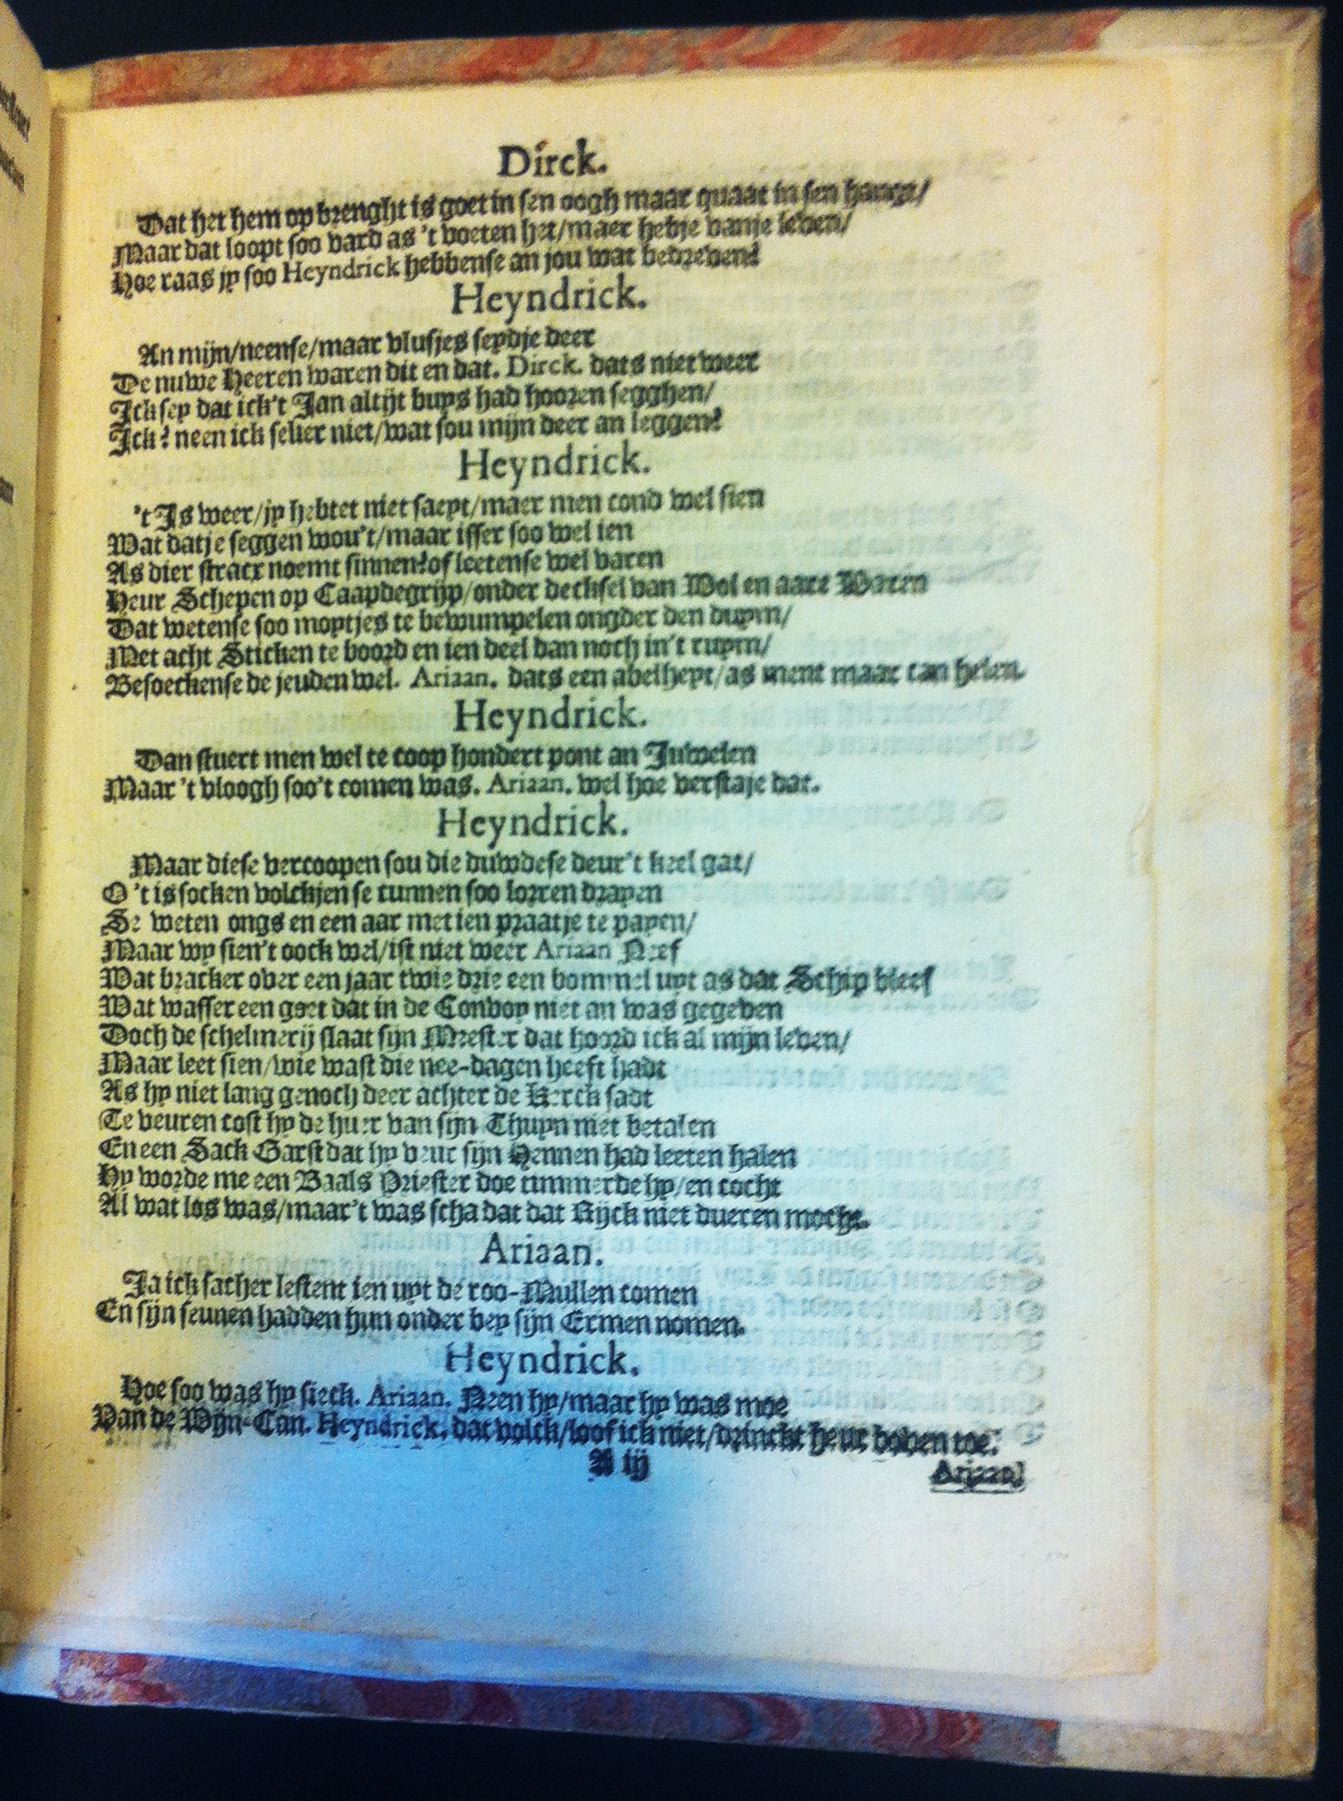 Dirck.
Dat het hem op brenght is goet in sen oogh maar quaat in sen hangt/
Maar dat loopt soo vard as 't voeten het/maer hebje vanje leven/
Hoe raas jy soo Heyndrick hebbense an jou wat bedreven?
Heyndrick.
An mijn/neense/maar vlusjes seydje deer
De nuwe Heeren waren dit en dat. Dirck. dats niet weer
Ick sey dat ick't Jan altijt buys had hooren segghen/
Ick? neen ick seker niet/wat sou mijn deer an leggen?
Heyndrick.
't Is weer/jy hebtet niet saeyt/maer men cond wel sien
Wat datje seggen wou't/maar isser soo wel ien
As dier stracx noemt sinnen?of leetense wel varen
Heur Schepen op Caapdegrijp/onder decksel van Wol en aare Waren
Dat wetense soo moytjes te bewumpelen ongder den duym/
Met acht Sticken te boord en ien deel dan noch in't ruym/
Besoeckense de jeuden wel. Ariaan. dats een abelheyt/as ment maar can helen.
Heyndrick.
Dan stuert men wel te coop hondert pont an Juwelen
Maar 't vloogh soo't comen was. Ariaan. wel hoe verstaje dat.
Heyndrick.
Maar diese vercoopen sou die duwdese deur't keel gat/
O 't is socken volckjen se cunnen soo lorren drayen
Se weten ongs en een aar met ien praatje te payen/
Maar wy sien't oock wel/ist niet weer Ariaan Neef
Wat bracker over een jaar twie drie een bommel uyt as dat Schip bleef
Wat wasser een goet dat in de Convoy niet an was gegeven
Doch de schelmerij slaat sijn Meester dat hoord ick al mijn leven/
Maar leet sien/wie wast die nee-dagen heeft hadt
As hy niet lang genoch deer achter de Kerck sadt
Te veuren cost hy de huer van sijn Thuyn niet betalen
En een Sack Garst dat hy veur sijn Hennen had leeten halen
Hy worde me een Baals Priester doe timmerde hy/en cocht
Al wat los was/maar't was scha dat dat Rijck niet dueren mocht.
Ariaan.
Ja ick sacher lestent ien uyt de roo-Mullen comen
En sijn seunen hadden hun onder bey sijn Ermen nomen.
Heyndrick.
Hoe soo was hy sieck. Ariaan. Neen hy/maar hy was moe
Van de Wijn-Can. Heyndrick. dat volck/loof ick niet/drinckt heur boven toe.
A iij
Ariaan,